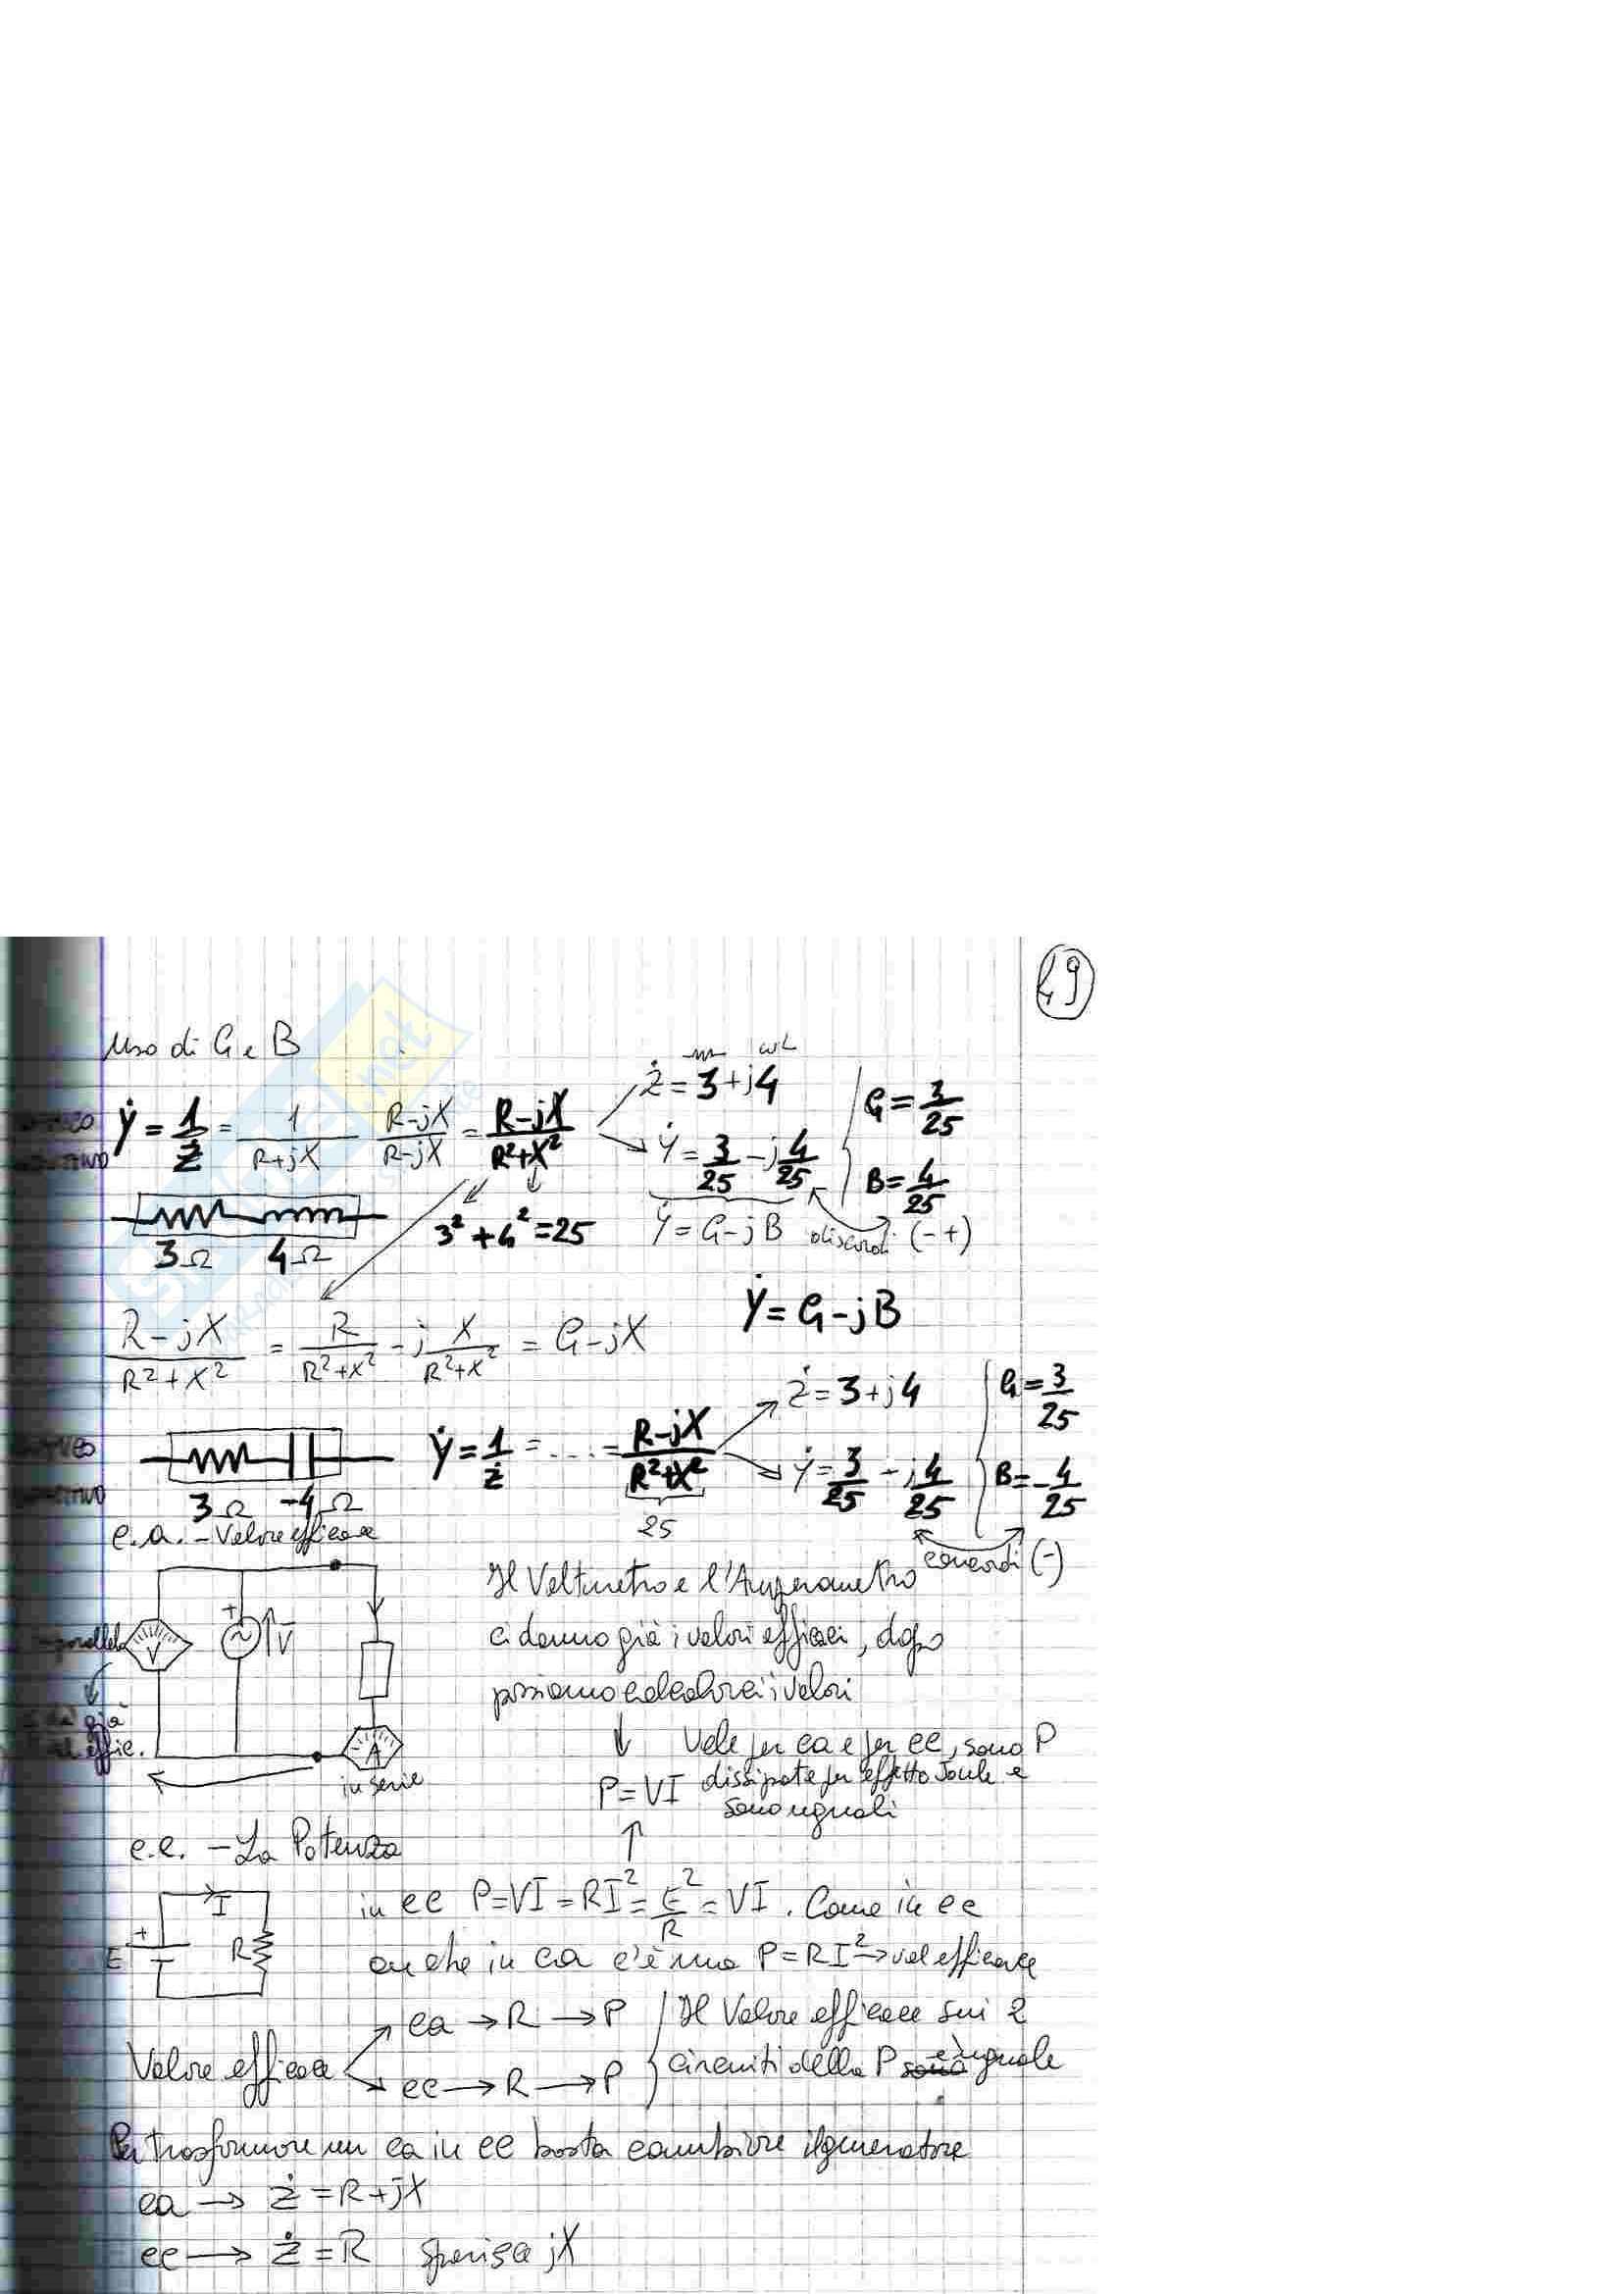 49
Uso di G e B
Ẏ = 1/Ż = 1/(R+jX) (R-jX)/(R-jX) = (R-jX)/(R²+X²)
ωL
Ż = 3+j4
Ẏ = 3/25 - j4/25
G = 3/25
B = 4/25
3Ω 4Ω
3² + 4² = 25
Ẏ = G-jB discordi (-+)
Ẏ = G-jB
(R-jX)/(R²+X²) = R/(R²+X²) - j X/(R²+X²) = G-jX
3Ω -4Ω
Ẏ = 1/Ż = .... = (R-jX)/(R²+X²)
25
Ż = 3+j4
Ẏ = 3/25 - j4/25
G = 3/25
B = -4/25
concordi (-)
c.a. - Valore efficace
parallelo
V
+
V
A
in serie
già
effic.
Il Voltmetro e l'Amperometro
ci danno già i valori efficaci, dopo
possiamo calcolarci i valori
↓
P=VI
Vale per ca e per cc, sono P
dissipate per effetto Joule e
sono uguali
↑
c.c. - La Potenza
I
+
E
R
in cc P=VI=RI²=E²/R=VI. Come in cc
anche in ca c'è una P=RI²→val efficace
Valore efficace
ca → R → P
cc → R → P
Il Valore efficace sui 2
circuiti della P sono è uguale
Per trasformare un ca in cc basta cambiare il generatore
ca → Ż = R+jX
cc → Ż = R sparisce jX